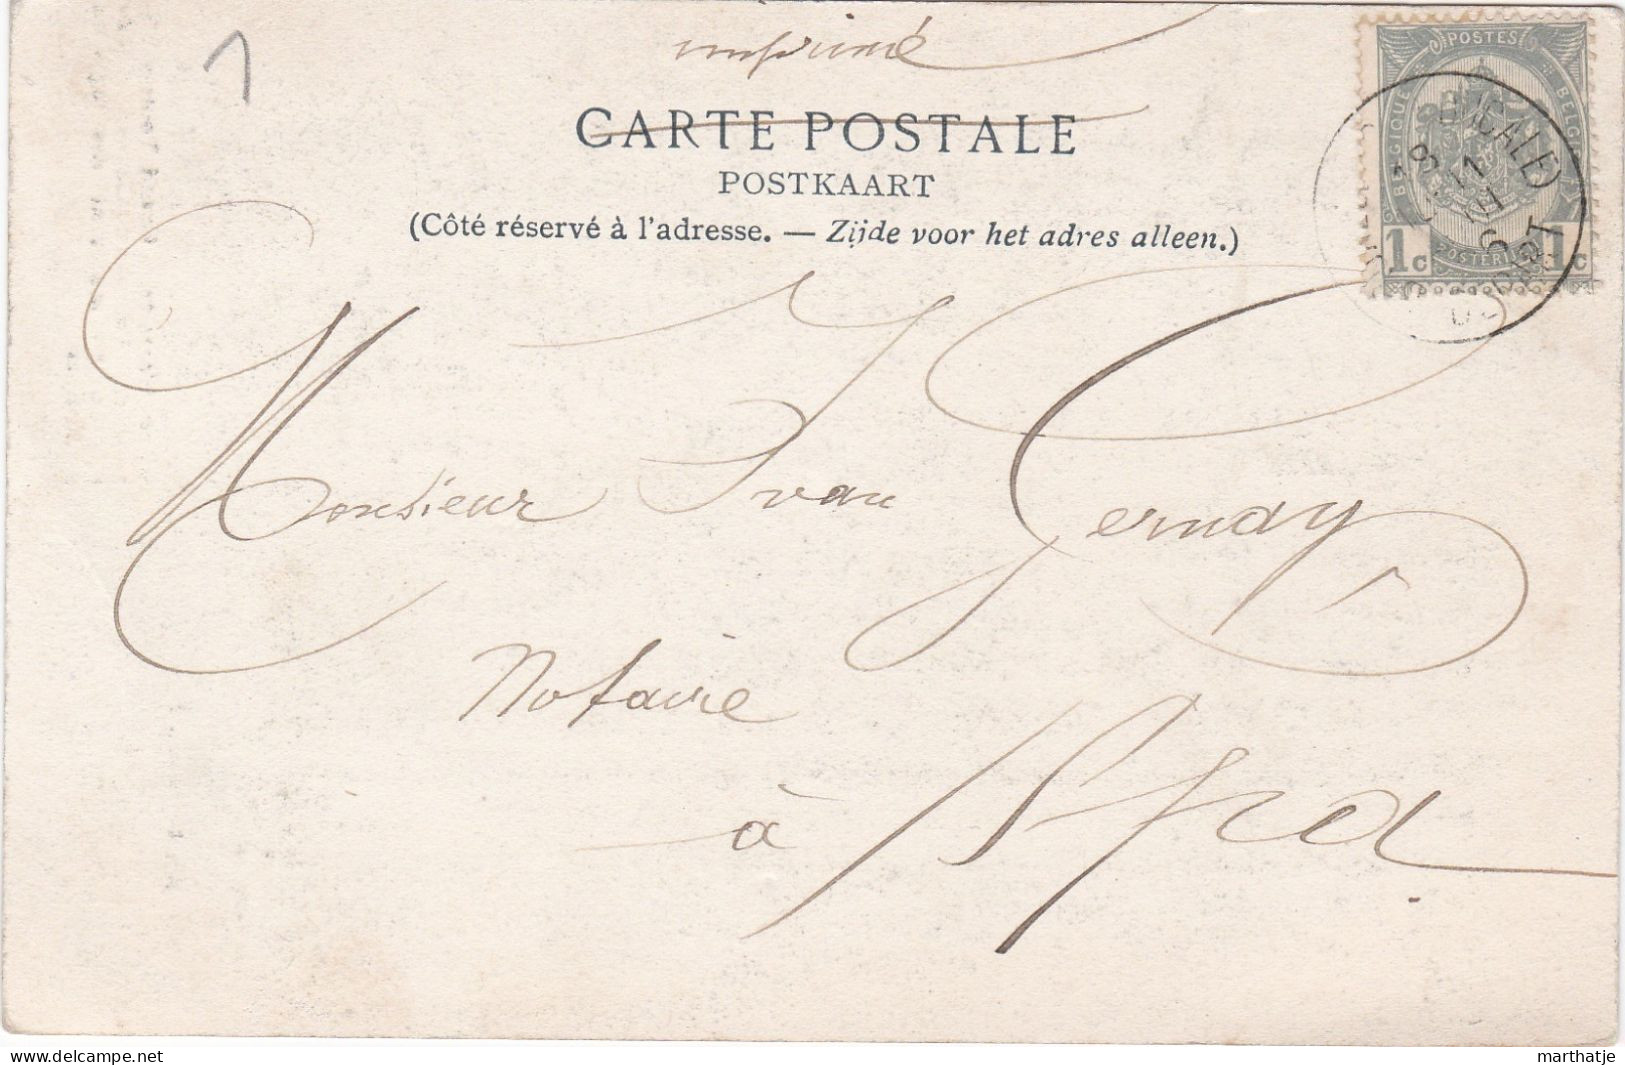 1
imprimé
CARTE POSTALE
POSTKAART
(Côté réservé à l'adresse. — Zijde voor het adres alleen.)
POSTES
BELGIQUE
1c 1c
Monsieur Ivan Gernay
Notaire
à Spa.
delcampe.net
marthatje